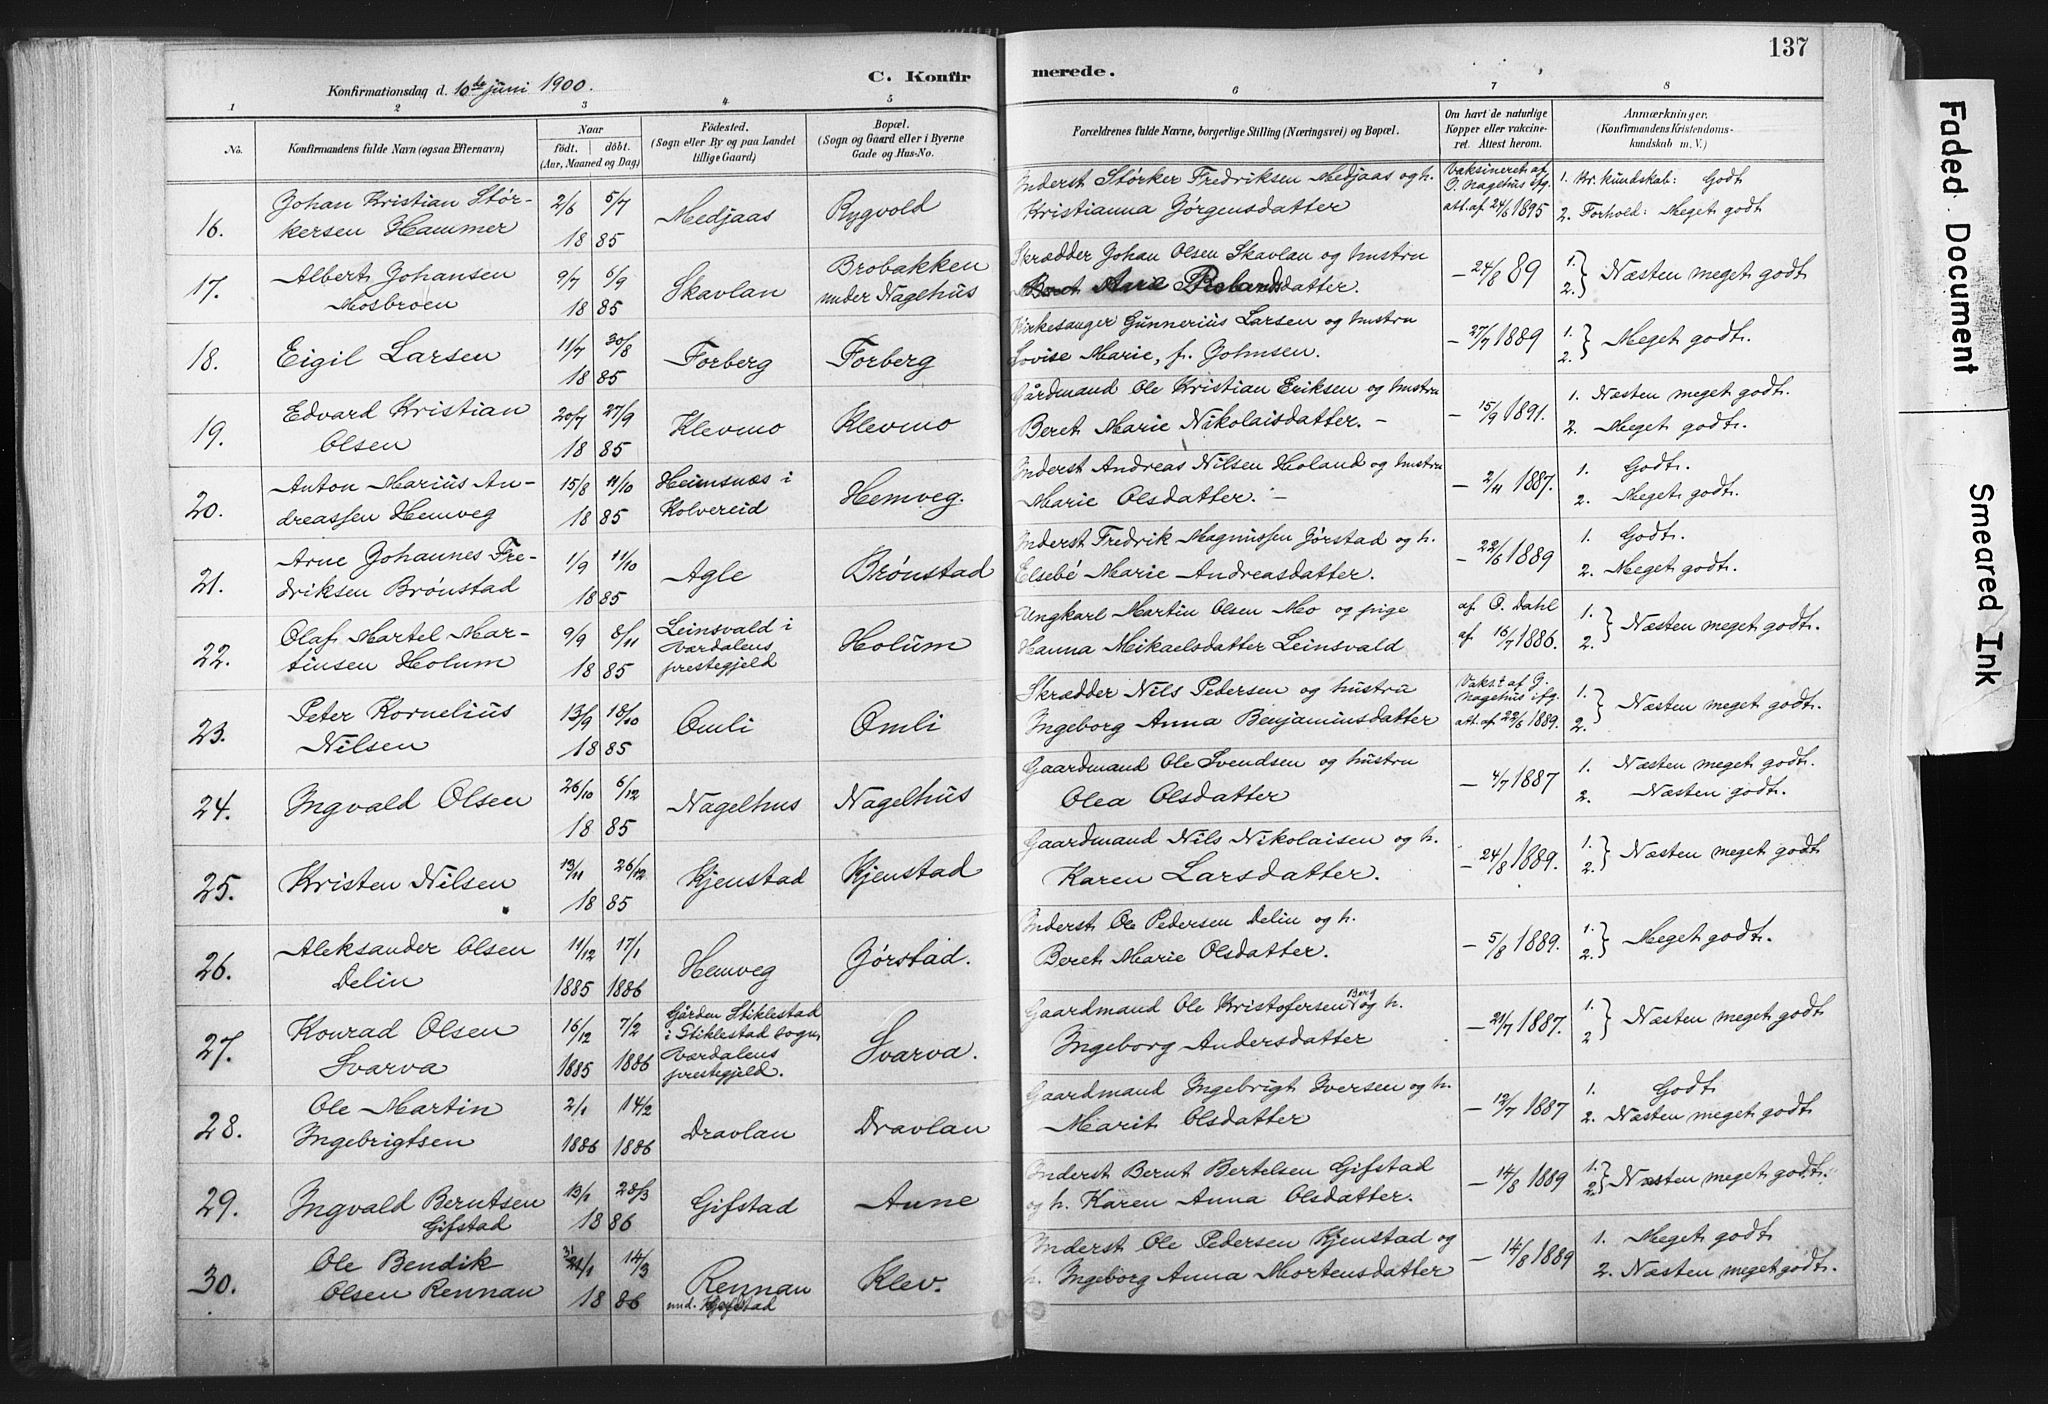 137
C. Konfirmerede.
Konfirmationsdag d. 10de juni 1900.
1 2 3 4 5 6 7 8
No. Konfirmandens fulde Navn (ogsaa Efternavn) Naar født. døbt. (Aar, Maaned og Dag) Fødested. (Sogn eller By og paa Landet tillige Gaard) Bopæl. (Sogn og Gaard eller i Byerne Gade og Hus-No. Forældrenes fulde Navne, borgerlige Stilling (Næringsvei) og Bopæl. Om havt de naturlige Kopper eller vaccineret. Attest herom. Anmærkninger. (Konfirmandens Kristendomskundskab m. V.)
16. Johan Kristian Stør- 2/6 5/7 Medjaas Rygvold Inderst Størker Fredriksen Medjaas og h. Vaksineret af O. Nagehus ifg. 1. Kr. kundskab: Godt
kersen Hammer 1885 Kristianna Jørgensdatter att. af 24/6 1895 2. Forhold: Meget godt
17. Albert Johansen 9/7 6/9 Skavlan Brobakken Skrædder Johan Olsen Skavlan og hustru - 24/8 89 1. 2. } Næsten meget godt
Mosbroen 1885 under Nagehus
18. Eigil Larsen 11/7 30/8 Forberg Forberg Kirkesanger Gunnerius Larsen og hustru - 27/7 1889 1. 2. } Meget godt.
1885 Lovise Marie, f. Johnsen.
19. Edvard Kristian 20/7 27/9 Klevmo Klevmo Gårdmand Ole Kristian Eriksen og hustru - 15/9 1891. 1. Næsten meget godt.
Olsen 1885 Beret Marie Nikolaisdatter. - 2. Meget godt.
20. Anton Marius An- 15/8 11/10 Heimsnæs i Hemveg. Inderst Andreas Nilsen Holand og hustru - 2/11 1887. 1. Godt.
dreassen Hemveg 1885 Kolvereid Marie Olsdatter. - 2. Meget godt.
21. Arne Johannes Fre- 1/9 11/10 Agle Brønstad Inderst Fredrik Magnussen Jørstad og h. - 22/6 1889 1. Godt.
driksen Brønstad 1885 Elsebé Marie Andreasdatter. 2. Meget godt.
22. Olaf Martel Mar- 9/9 8/11 Leinsvald i Holum Ungkarl Martin Olsen Mo og pige af O. Dahl 1. 2. } Næsten meget godt.
tinsen Holum 1885 Værdalens prestegjeld Hanna Mikaelsdatter Leinsvald af 16/7 1886.
23. Peter Kornelius 13/9 18/10 Omli Omli Skrædder Nils Pedersen og hustru Vaks.t af O. Nagehus ifg. 1. 2. } Næsten meget godt.
Nilsen 1885 Ingeborg Anna Benjaminsdatter att. af 22/6 1889.
24. Ingvald Olsen 26/10 6/12 Nagelhus Nagelhus Gaardmand Ole Svendsen og hustru - 4/7 1887 1. Næsten meget godt.
1885 Olea Olsdatter 2. Næsten godt.
25. Kristen Nilsen 13/11 26/12 Kjenstad Kjenstad Gaardmand Nils Nikolaisen og h. - 24/8 1889. 1. 2. } Næsten meget godt
1885 Karen Larsdatter.
26. Aleksander Olsen 11/12 17/1 Hemveg Jørstad. Inderst Ole Pedersen Delin og h. - 5/8 1889. 1. 2. } Meget godt.
Delin 1885 1886 Beret Marie Olsdatter.
27. Konrad Olsen 16/12 7/2 Gården Stiklestad i Stiklestad sogn, Svarva. Gaardmand Ole Kristofersen Berg og h. - 21/7 1887. 1. 2 } Næsten meget godt
Svarva 1885 1886 Værdalens prestegjeld. Ingeborg Andersdatter
28. Ole Martin 2/1 14/2 Dravlan Dravlan Gaardmand Ingebrigt Iversen og h. - 12/7 1887 1. Godt
Ingebrigtsen 1886 1886 Marit Olsdatter 2. Næsten meget godt
29. Ingvald Berntsen 13/1 28/3 Gifstad Aune Inderst Bernt Bertelsen Gifstad - 14/8 1889 1. 2. } Næsten meget godt.
Gifstad 1886 og h. Karen Anna Olsdatter.
30. Ole Bendik 31/1 14/3 Rennan Klev. Inderst Ole Pedersen Kjenstad og - 14/8 1889 1. Meget godt
Olsen Rennan 1886 und. h. Ingeborg Anna Mortensdatter 2. Næsten meget godt.
Faded Document
Smeared Ink